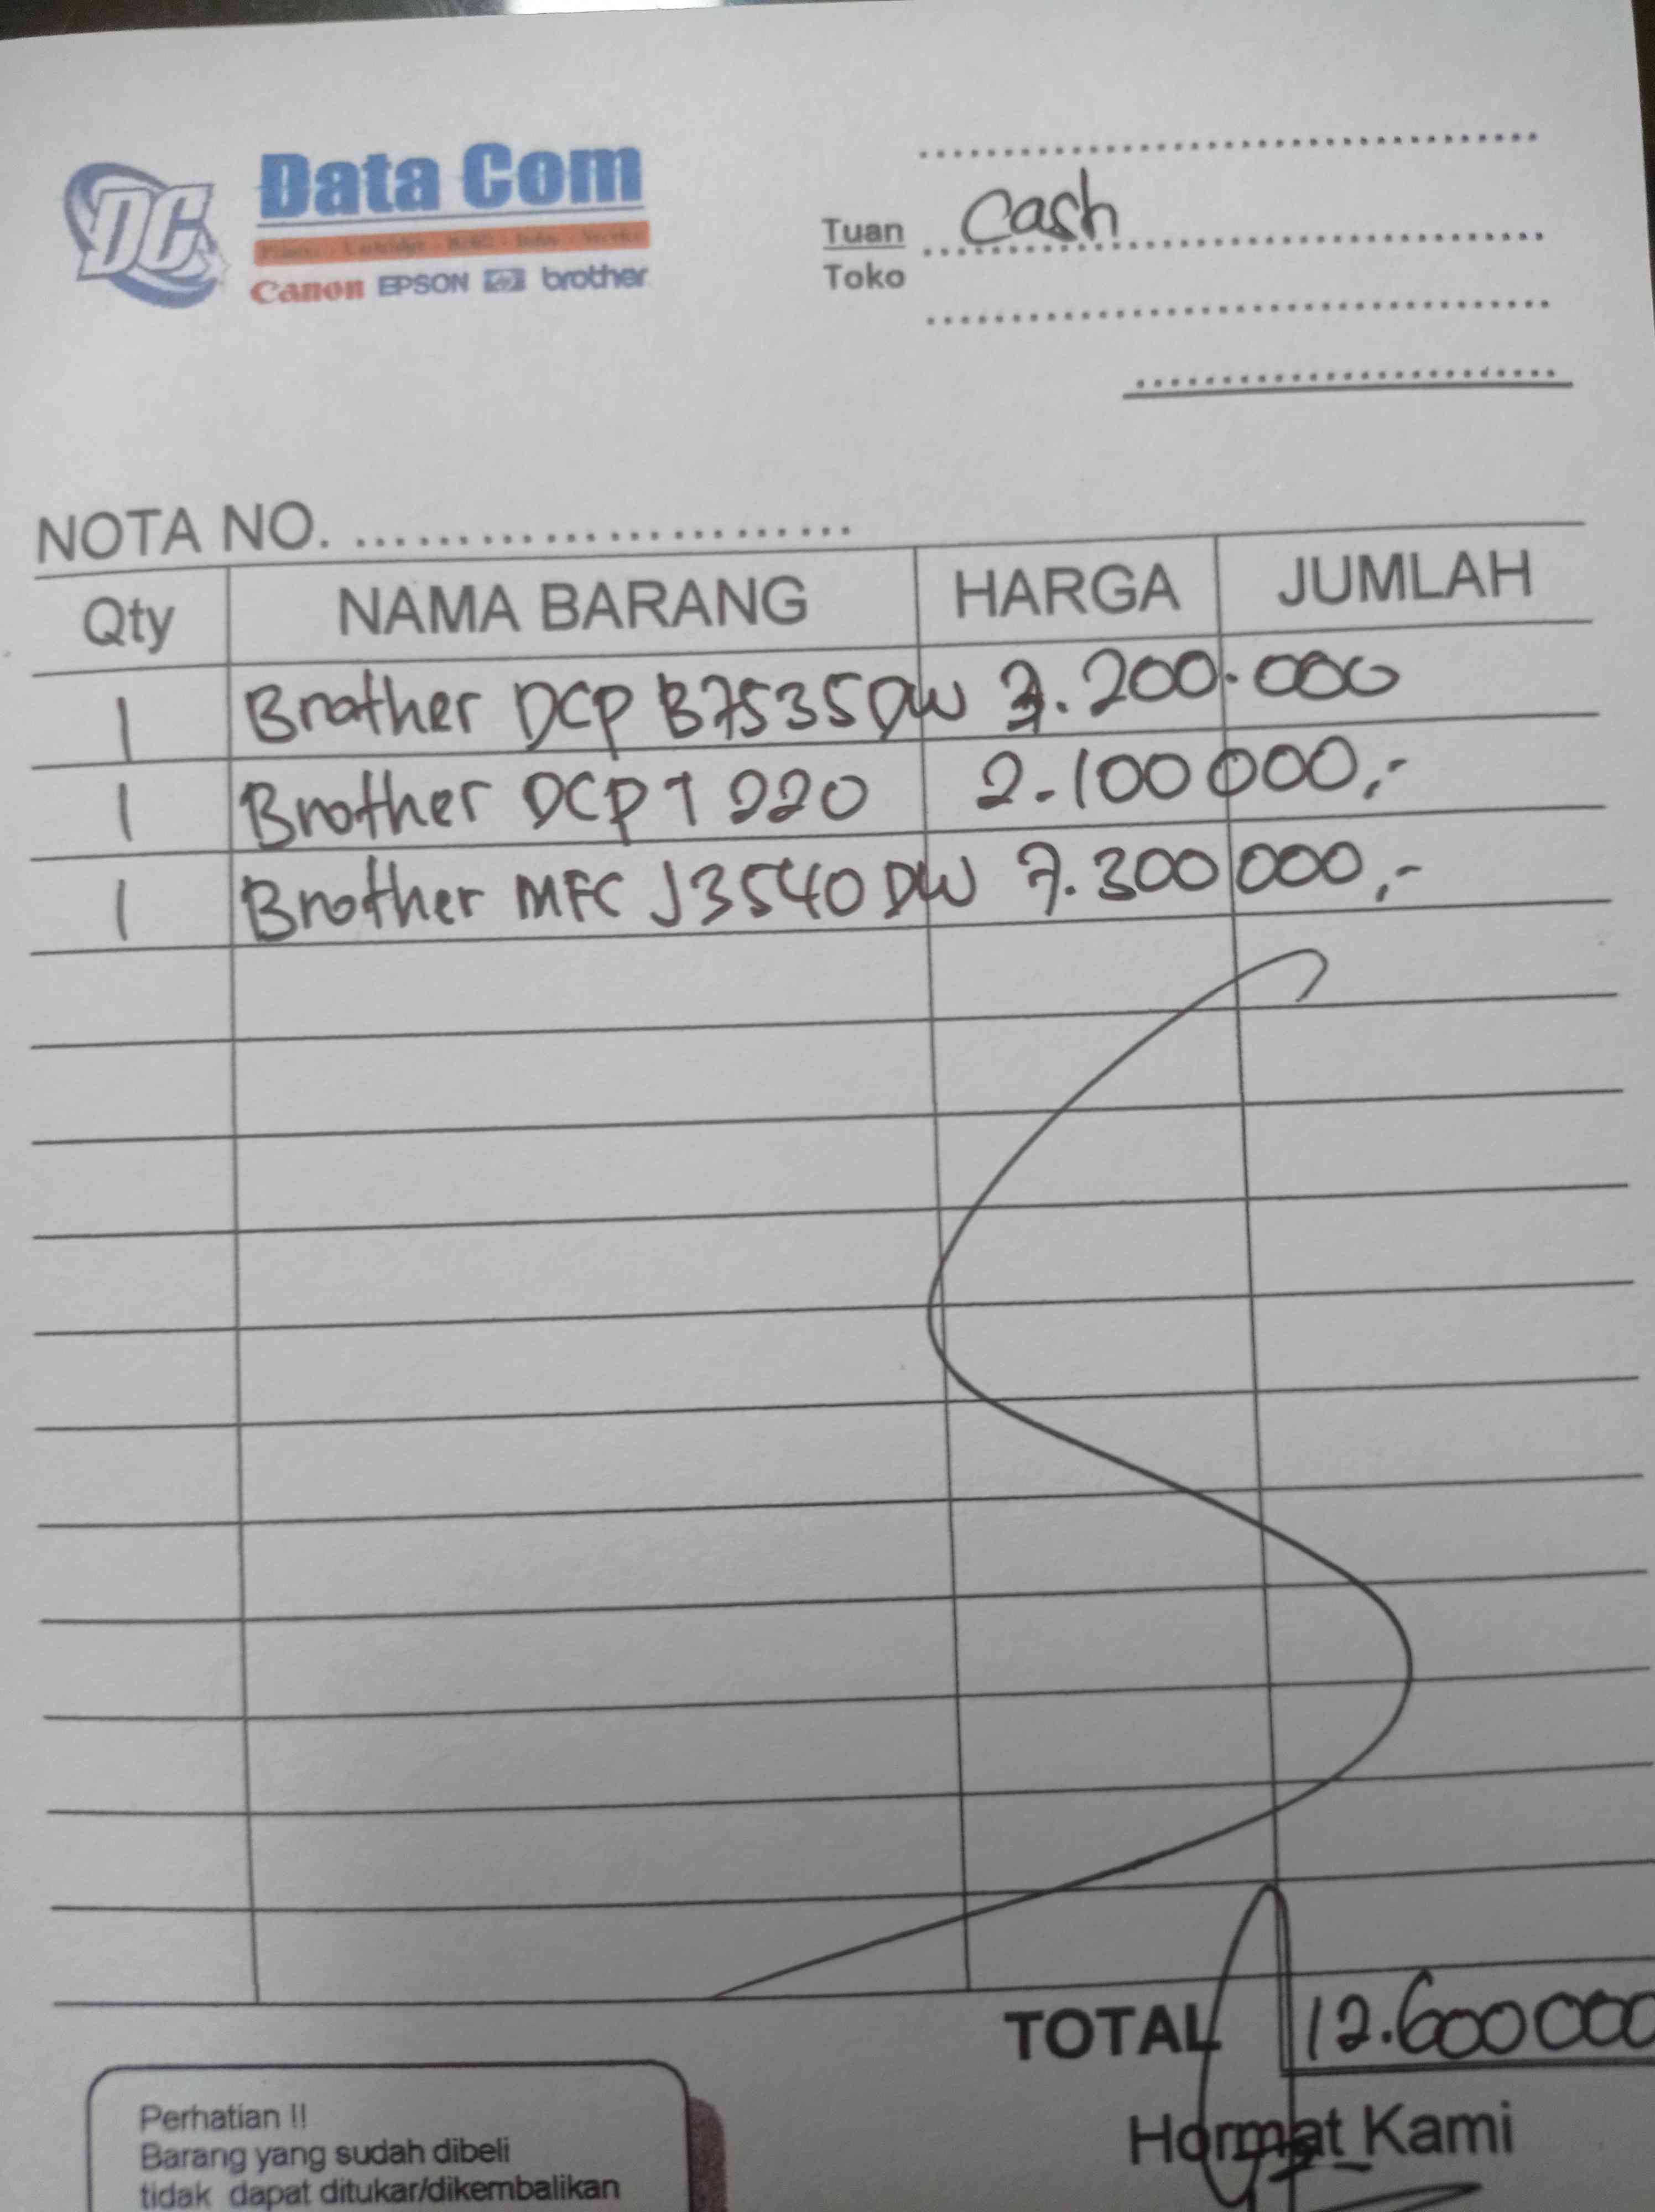 DC
Data Com
Canon EPSON hp brother
Tuan Cash
Toko
NOTA NO. ........................
Qty NAMA BARANG HARGA JUMLAH
1 Brother DCP B7535DW 3.200.000
1 Brother DCP T 220 2.100000,-
1 Brother MFC J3540DW 7.300000,-
TOTAL 12.600000
Perhatian !!
Hormat Kami
Barang yang sudah dibeli
tidak dapat ditukar/dikembalikan